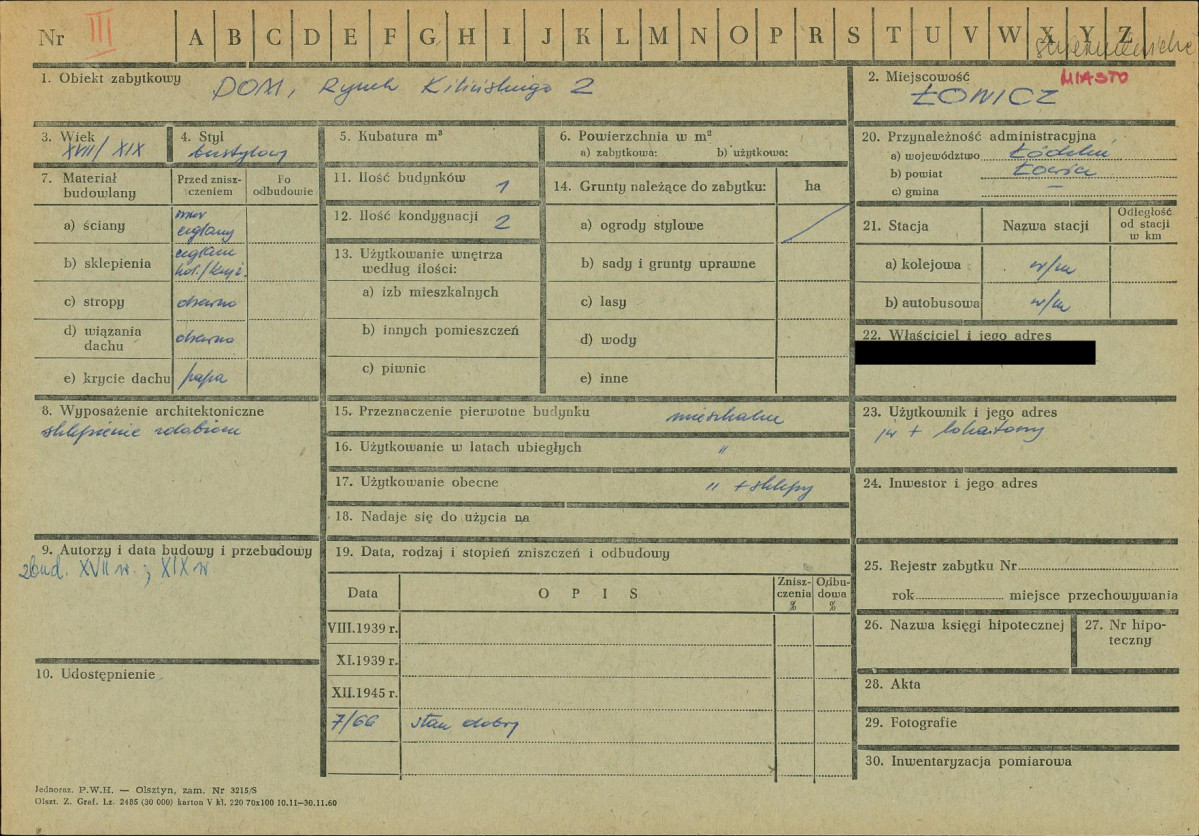 Nr III A B C D E F G H I J K L M N O P R S T U V W X Y Z
skierniewickie
1. Obiekt zabytkowy DOM, Rynek Kilińskiego 2
2. Miejscowość MIASTO
ŁOWICZ
3. Wiek
XVII/XIX
4. Styl
bezstylowy
5. Kubatura m³
6. Powierzchnia w m²
a) zabytkowa: b) użytkowa:
7. Materiał budowlany
Przed zniszczeniem
Po odbudowie
a) ściany mur ceglany
b) sklepienia
c) stropy drewno
d) wiązania dachu drewno
e) krycie dachu papa
8. Wyposażenie architektoniczne
sklepienie
9. Autorzy i data budowy i przebudowy
zbud. XVII w. ; XIX w
10. Udostępnienie
11. Ilość budynków 1
12. Ilość kondygnacji 2
13. Użytkowanie wnętrza według ilości:
a) izb mieszkalnych
b) innych pomieszczeń
c) piwnic
14. Grunty należące do zabytku: ha
a) ogrody stylowe
b) sady i grunty uprawne
c) lasy
d) wody
e) inne
15. Przeznaczenie pierwotne budynku mieszkalne
16. Użytkowanie w latach ubiegłych "
17. Użytkowanie obecne " + sklepy
18. Nadaje się do użycia na
19. Data, rodzaj i stopień zniszczeń i odbudowy
Data
O P I S
Zniszczenia %
Odbudowa %
VIII.1939 r.
XI.1939 r.
XII.1945 r.
7/66 stan dobry
20. Przynależność administracyjna
a) województwo Łódzkie
b) powiat Łowicz
c) gmina –
21. Stacja
Nazwa stacji
Odległość od stacji w km
a) kolejowa w/m
b) autobusowa w/m
22. Właściciel i jego adres
23. Użytkownik i jego adres
jw + lokatorzy
24. Inwestor i jego adres
25. Rejestr zabytku Nr
rok miejsce przechowywania
26. Nazwa księgi hipotecznej
27. Nr hipoteczny
28. Akta
29. Fotografie
30. Inwentaryzacja pomiarowa
Jednoraz. P.W.H. — Olsztyn, zam. Nr 3215/S
Olszt. Z. Graf. Lz. 2485 (30 000) karton V kl. 220 70x100 10.11—30.11.60